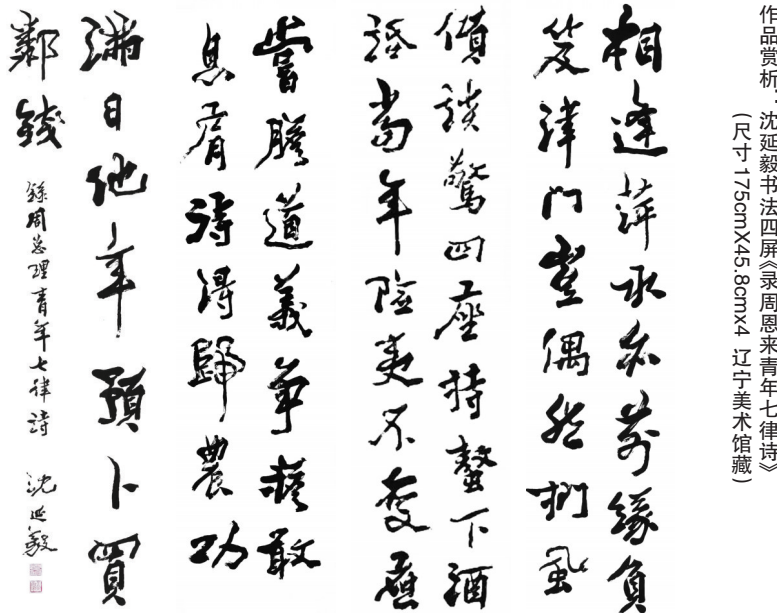 作品赏析：沈延毅书法四屏《录周恩来青年七律诗》
(尺寸 175cmX45.8cmx4 辽宁美术馆藏)
相逢萍水亦前緣負
笈津門豈偶然捫虱
傾談驚四座持螯下酒
話當年險夷不變應
嘗膽道義爭擔敢
息肩待得歸農功
滿日他年預卜買
鄰錢
錄周总理青年七律詩 沈延毅